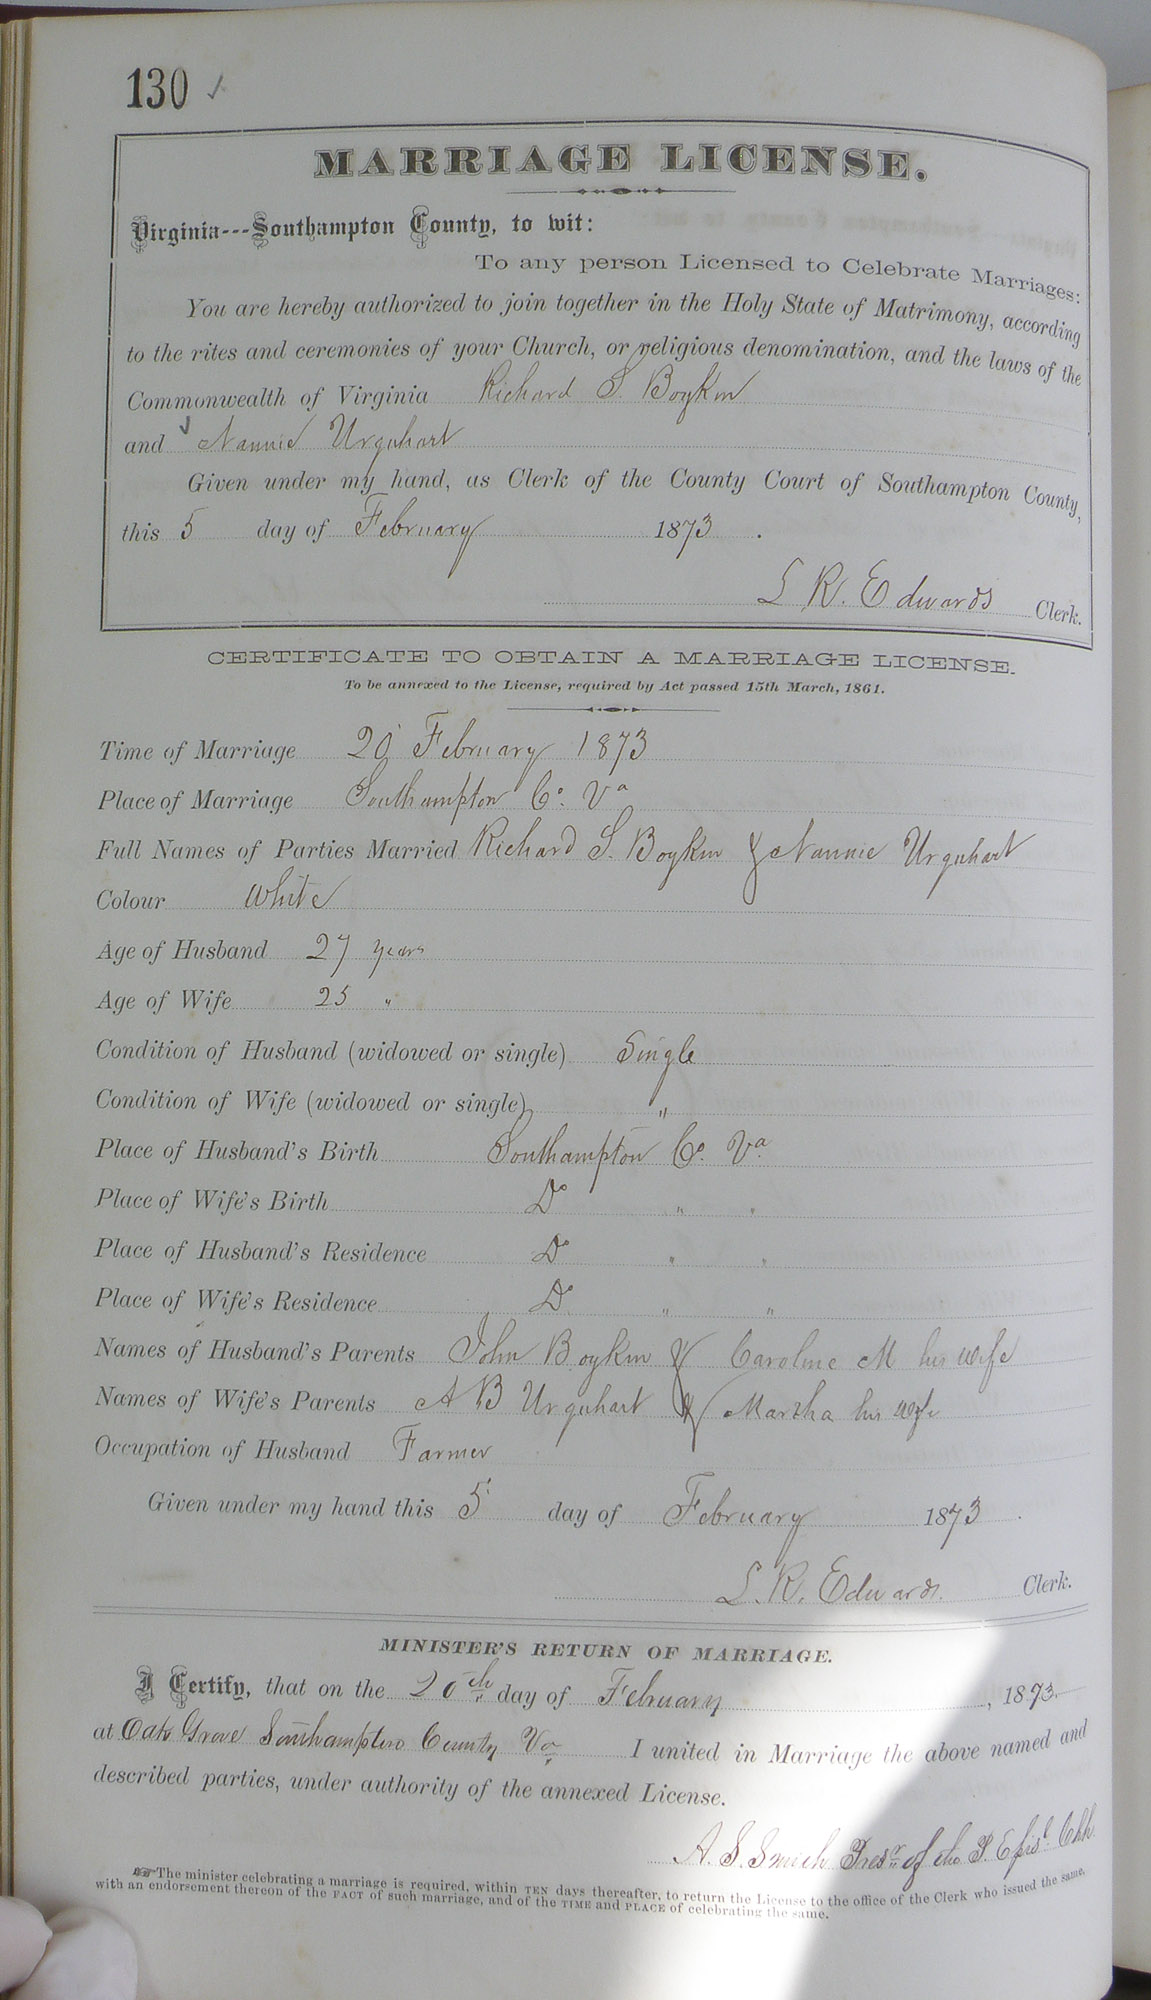 130 ✓
MARRIAGE LICENSE.
Virginia---Southampton County, to wit:
To any person Licensed to Celebrate Marriages:
You are hereby authorized to join together in the Holy State of Matrimony, according
to the rites and ceremonies of your Church, or religious denomination, and the laws of the
Commonwealth of Virginia Richard S. Boykin
and ✓ Nannie Urquhart
Given under my hand, as Clerk of the County Court of Southampton County,
this 5 day of February 1873.
L R. Edwards Clerk.
CERTIFICATE TO OBTAIN A MARRIAGE LICENSE.
To be annexed to the License, required by Act passed 15th March, 1861.
Time of Marriage 20 February 1873
Place of Marriage Southampton Co. Va
Full Names of Parties Married Richard S. Boykin & Nannie Urquhart
Colour White
Age of Husband 27 years
Age of Wife 25 "
Condition of Husband (widowed or single) Single
Condition of Wife (widowed or single) "
Place of Husband's Birth Southampton Co. Va.
Place of Wife's Birth Do " "
Place of Husband's Residence Do " "
Place of Wife's Residence Do " "
Names of Husband's Parents John Boykin & Caroline M his wife
Names of Wife's Parents A B Urquhart & Martha his wife
Occupation of Husband Farmer
Given under my hand this 5 day of February 1873.
L. R. Edwards. Clerk.
MINISTER'S RETURN OF MARRIAGE.
I Certify, that on the 20th day of February, 1873.
at Oak Grove Southampton County Va I united in Marriage the above named and
described parties, under authority of the annexed License.
A. S. Smith of the P. Episl. Chh.
The minister celebrating a marriage is required, within TEN days thereafter, to return the License to the office of the Clerk who issued the same,
with an endorsement thereon of the FACT of such marriage, and of the TIME and PLACE of celebrating the same.